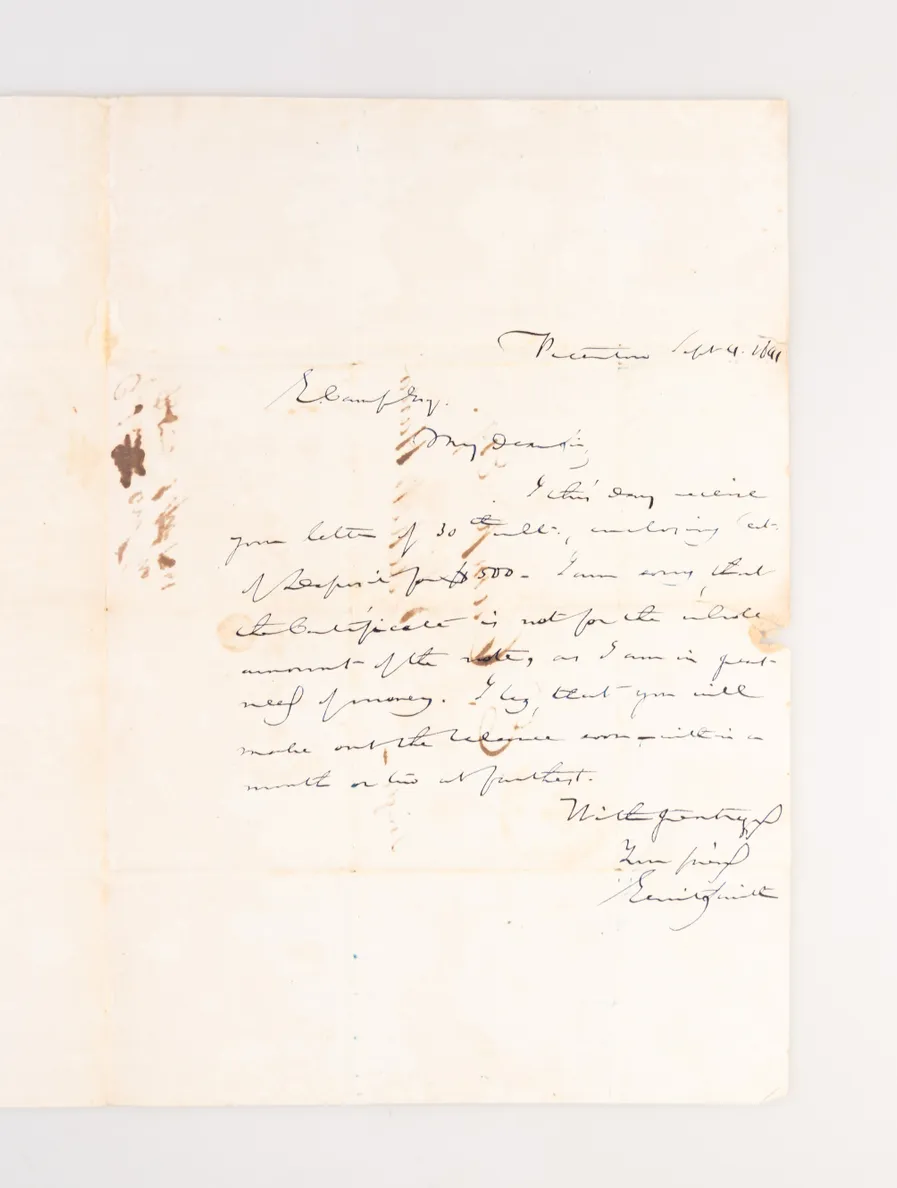 Peterboro Sept 4. 1841
E. Camp Esq.
My dear Sir,
I this day receive
your letter of 30th ult., enclosing Cet.
of Deposit for $500 - I am sorry, that
the Certificate is not for the whole
amount of the note, as I am in great
need of money. I beg, that you will
make out the balance soon - within a
month or two at farthest.
With great regard
Your friend
Gerrit Smith